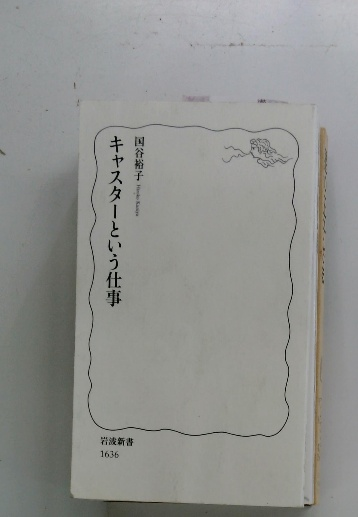 キャスターという仕事
国谷裕子
Hiroko Kuniya
岩波新書
1636